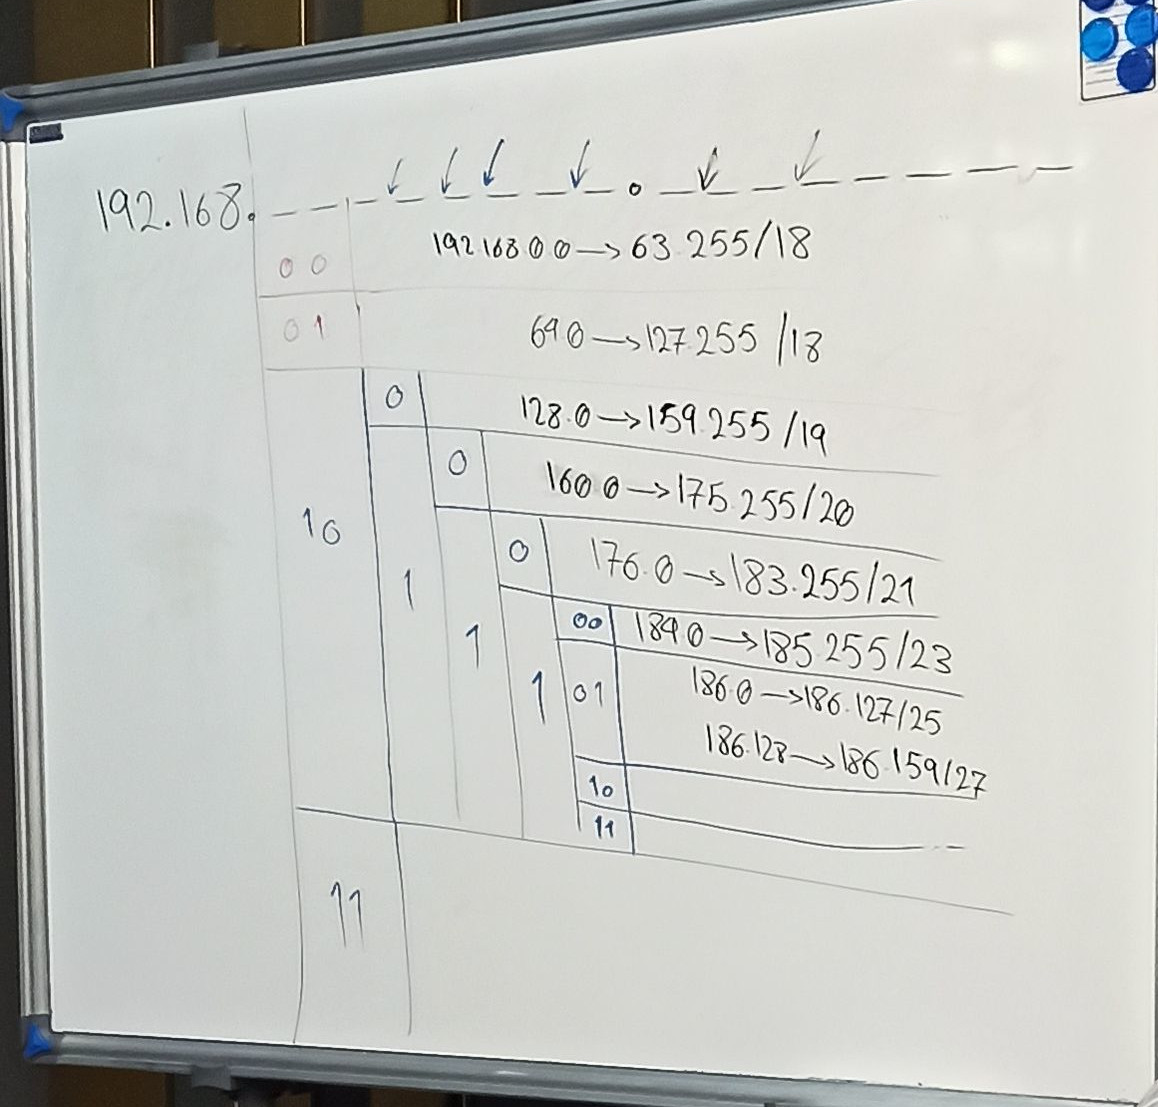 192.168. _ _ _ _ _ _ _ _ . _ _ _ _ _ _ _ _
00 192 168 0 0 → 63 255/18
01 64 0 → 127 255 /18
0 128.0 → 159.255 /19
0 160 0 → 175 255/20
10 1 1 0 176.0 → 183.255/21
00 184 0 → 185 255/23
1 01 186.0 → 186.127/25
186.128 → 186.159/27
10
11
11